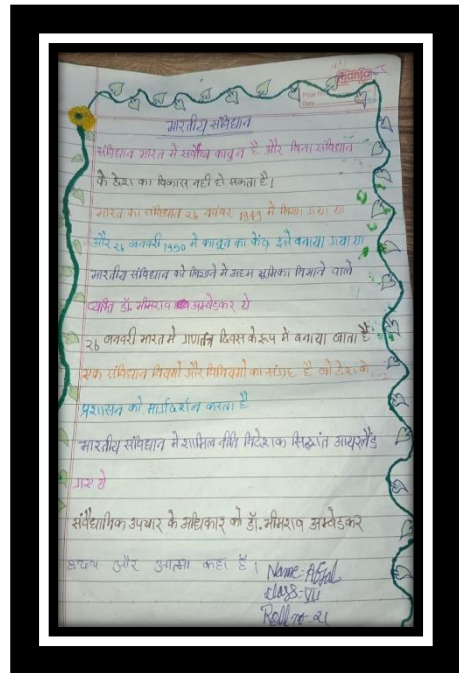 भारतीय संविधान
संविधान भारत में सर्वोच्च कानून है और बिना संविधान
के देश का विकास नहीं हो सकता है।
भारत का संविधान 26 नवंबर 1949 में लिखा गया था
और 26 जनवरी 1950 में कानून का केंद्र इसे बनाया गया था
भारतीय संविधान को लिखने में अहम भूमिका निभाने वाले
व्यक्ति डॉ. भीमराव अम्बेडकर थे
26 जनवरी भारत में गणतंत्र दिवस के रूप में बनाया जाता है
एक संविधान नियमों और विनियमों का संग्रह है जो देश के
प्रशासन को मार्गदर्शन करता है
भारतीय संविधान में शामिल नीति निदेशक सिद्धांत आयरलैंड
गए थे
संवैधानिक उपचार के अधिकार को डॉ. भीमराव अम्बेडकर
हृदय और आत्मा कहा है।
Name:- Afjal
class-VII
Roll no-21